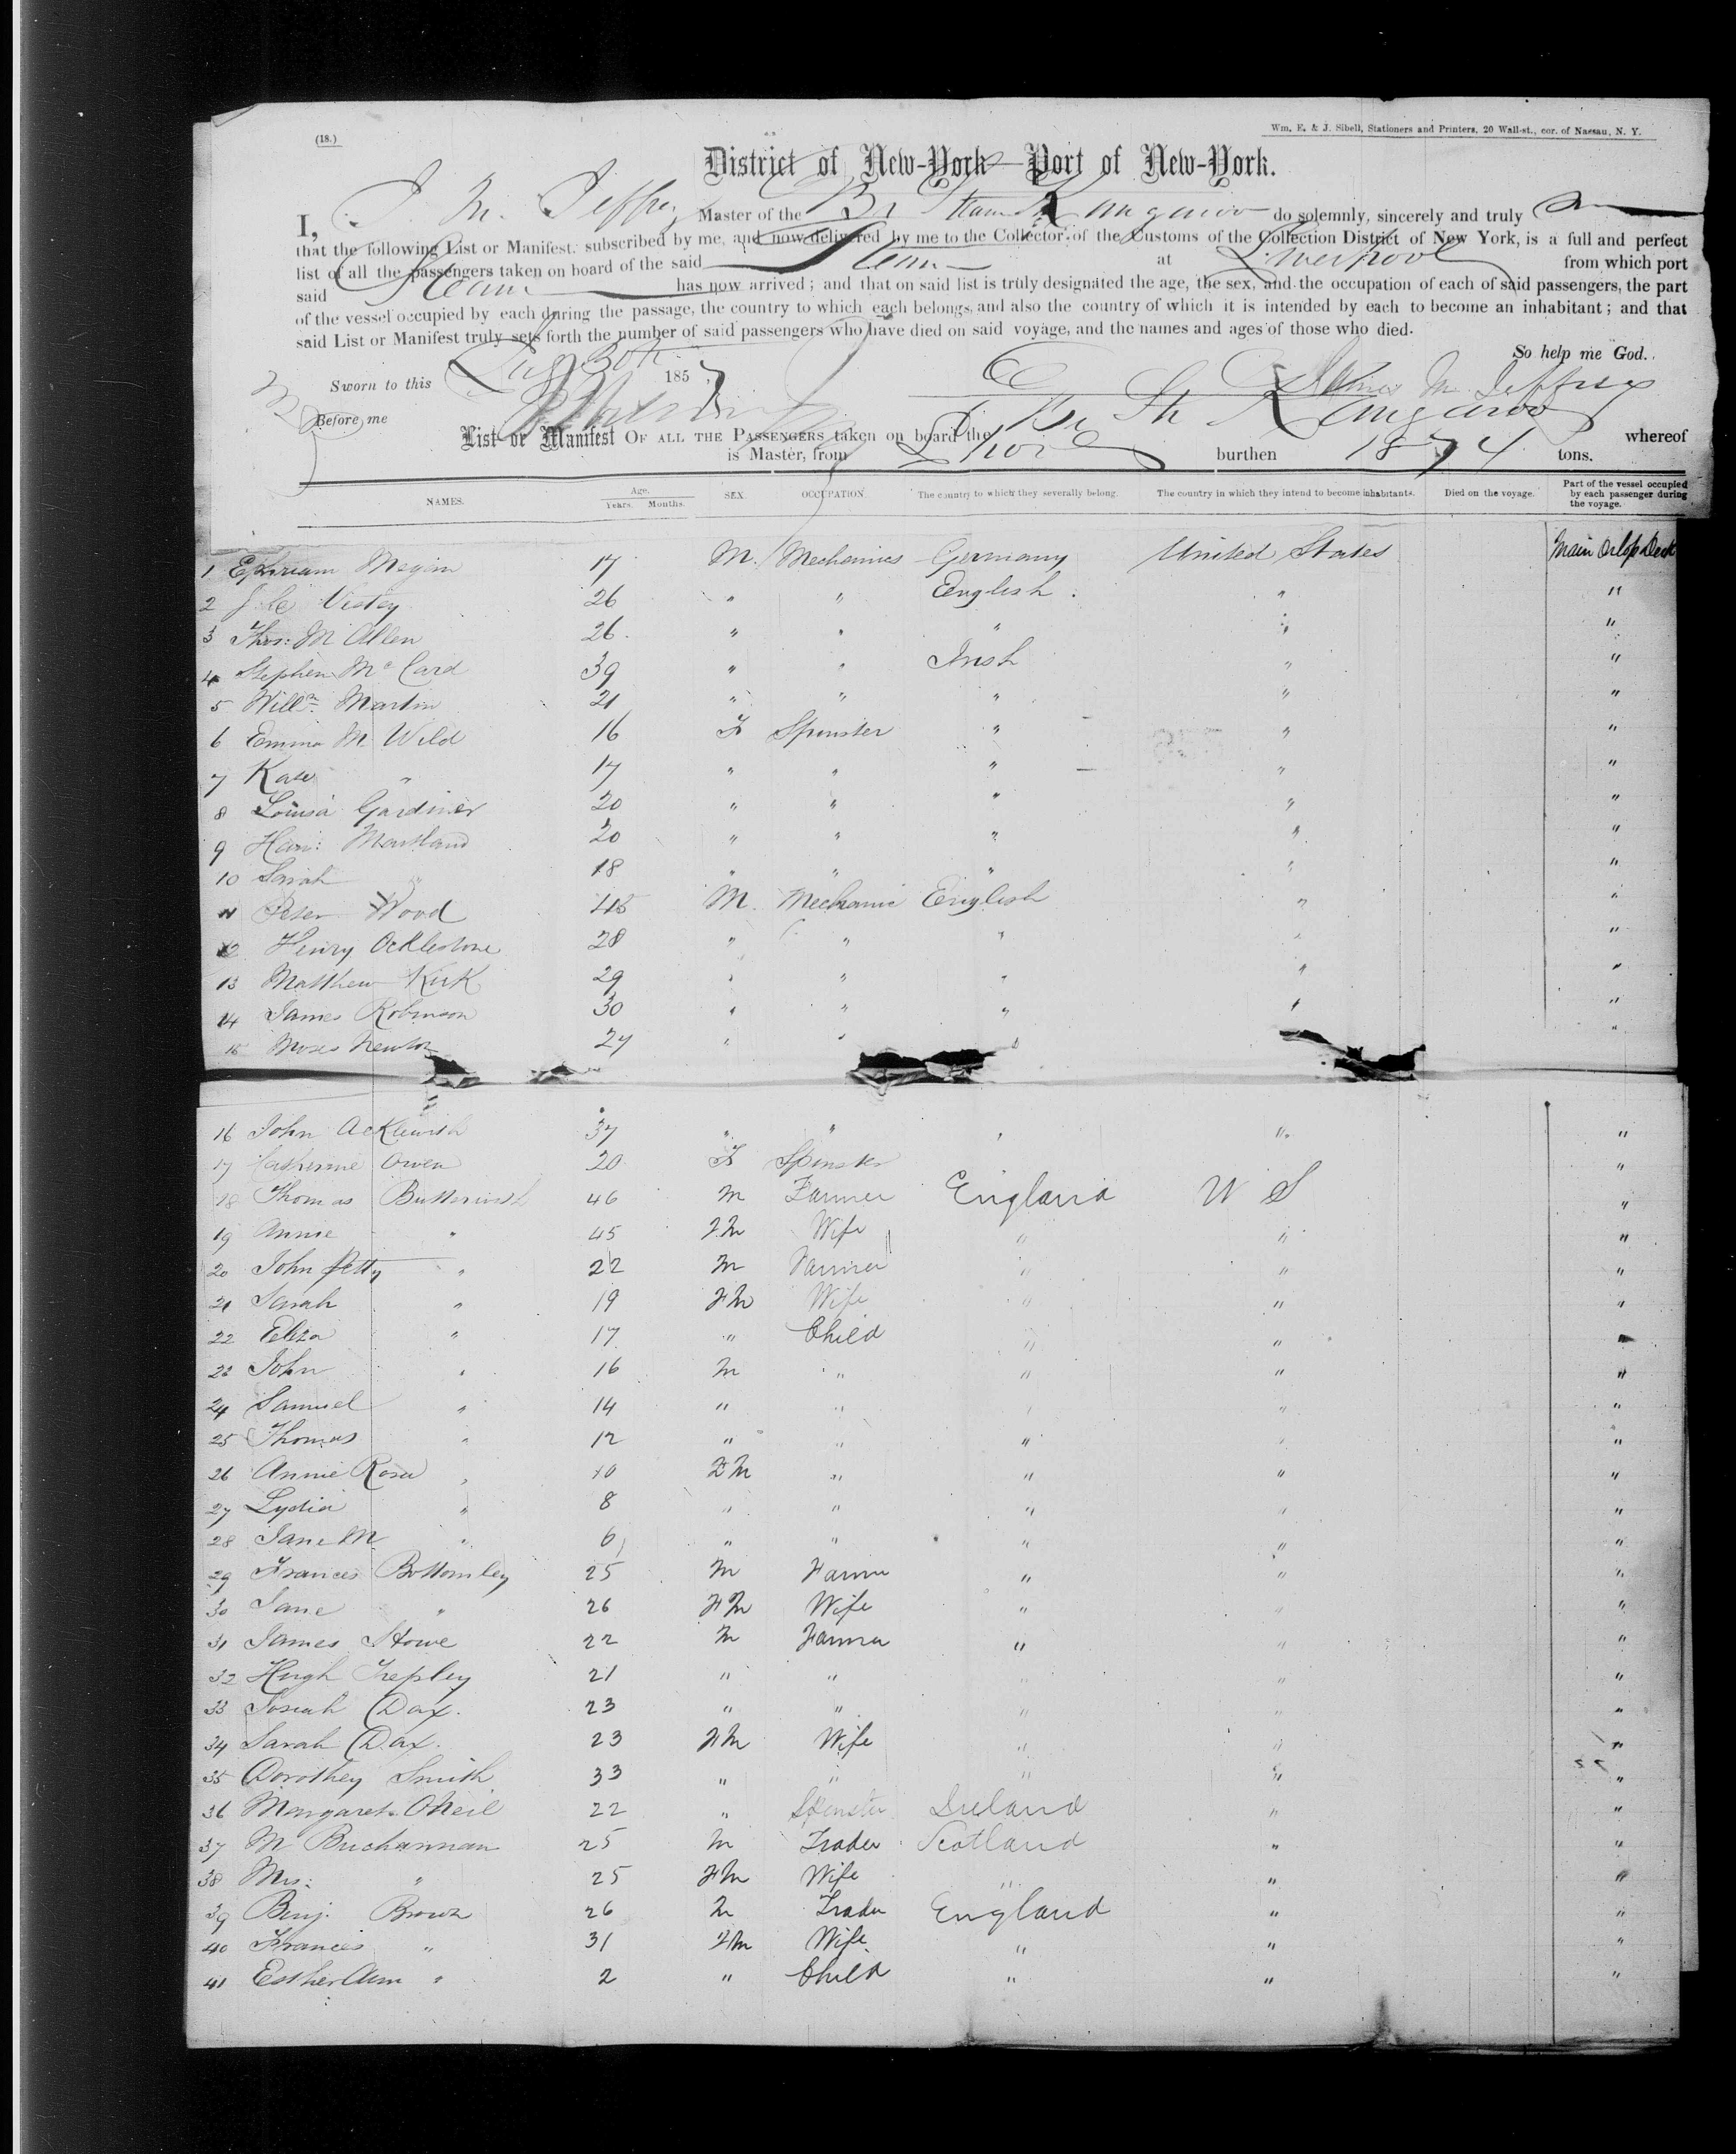 (18.)
Wm. E. & J. Sibell, Stationers and Printers, 20 Wall-st., cor. of Nassau, N. Y.
District of New-York—Port of New-York.
I, J. M. Jeffrey Master of the Br Steam Kangaroo do solemnly, sincerely and truly
that the following List or Manifest, subscribed by me, and now delivered by me to the Collector of the Customs of the Collection District of New York, is a full and perfect
list of all the passengers taken on board of the said Steam at Liverpool from which port
said Steam has now arrived; and that on said list is truly designated the age, the sex, and the occupation of each of said passengers, the part
of the vessel occupied by each during the passage, the country to which each belongs, and also the country of which it is intended by each to become an inhabitant; and that
said List or Manifest truly sets forth the number of said passengers who have died on said voyage, and the names and ages of those who died.
So help me God.
Sworn to this 30th 1857 James M Jeffrey
Before me
List or Manifest OF ALL THE PASSENGERS taken on board the Br St Kangaroo whereof
is Master, from L'pool burthen 1874 tons.
NAMES. Age. Years. Months. SEX. OCCUPATION. The country to which they severally belong. The country in which they intend to become inhabitants. Died on the voyage. Part of the vessel occupied by each passenger during the voyage.
1 Ephriam Megan 17 M. Mechanics Germany United States Main Orlop Deck
2 26 " " English " "
3 Thos: M Allen 26 " " " " "
4 Stephen Mc Card 39 " " Irish " "
5 Willm Martin 21 " " " " "
6 Emma M Wild 16 F Spinster " " "
7 Kate " 17 " " " " "
8 Louisa Gardiner 20 " " " " "
9 Maitland 20 " " " " "
10 Sarah " 18 " " " " "
11 Peter Wood 45 M. Mechanic English " "
12 Henry Ocklestone 28 " " " " "
13 Matthew Kirk 29 " " " " "
14 James Robinson 30 " " " " "
15 Moses Newton 27 " " " " "
16 John 37 " " " " "
17 Catherine Owen 20 F Spinster "
18 Thomas Butterwith 46 M Farmer England U S "
19 Annie " 45 FM Wife " " "
20 John " 22 M Farmer " " "
21 Sarah " 19 FM Wife " " "
22 Eliza " 17 " Child " " "
23 John " 16 M " " " "
24 Samuel " 14 " " " " "
25 Thomas " 12 " " " " "
26 Annie Rosa " 10 FM " " " "
27 Lydia " 8 " " " " "
28 Jane M " 6 " " " " "
29 Frances Bottomley 25 M Farmer " " "
30 Jane " 26 FM Wife " " "
31 James Stowe 22 M Farmer " " "
32 Hugh Tepley 21 " " " " "
33 Josiah Dax. 23 " " " " "
34 Sarah Dax. 23 FM Wife " " "
35 Dorothey Smith 33 " " " " "
36 Margaret ONeil 22 " Spenster Ireland " "
37 M Buchannan 25 M Trader Scotland " "
38 Mrs: " 25 FM Wife " " "
39 Benj. Brown 26 M Trader England " "
40 Frances " 31 FM Wife " " "
41 Esther Ann " 2 " Child " " "